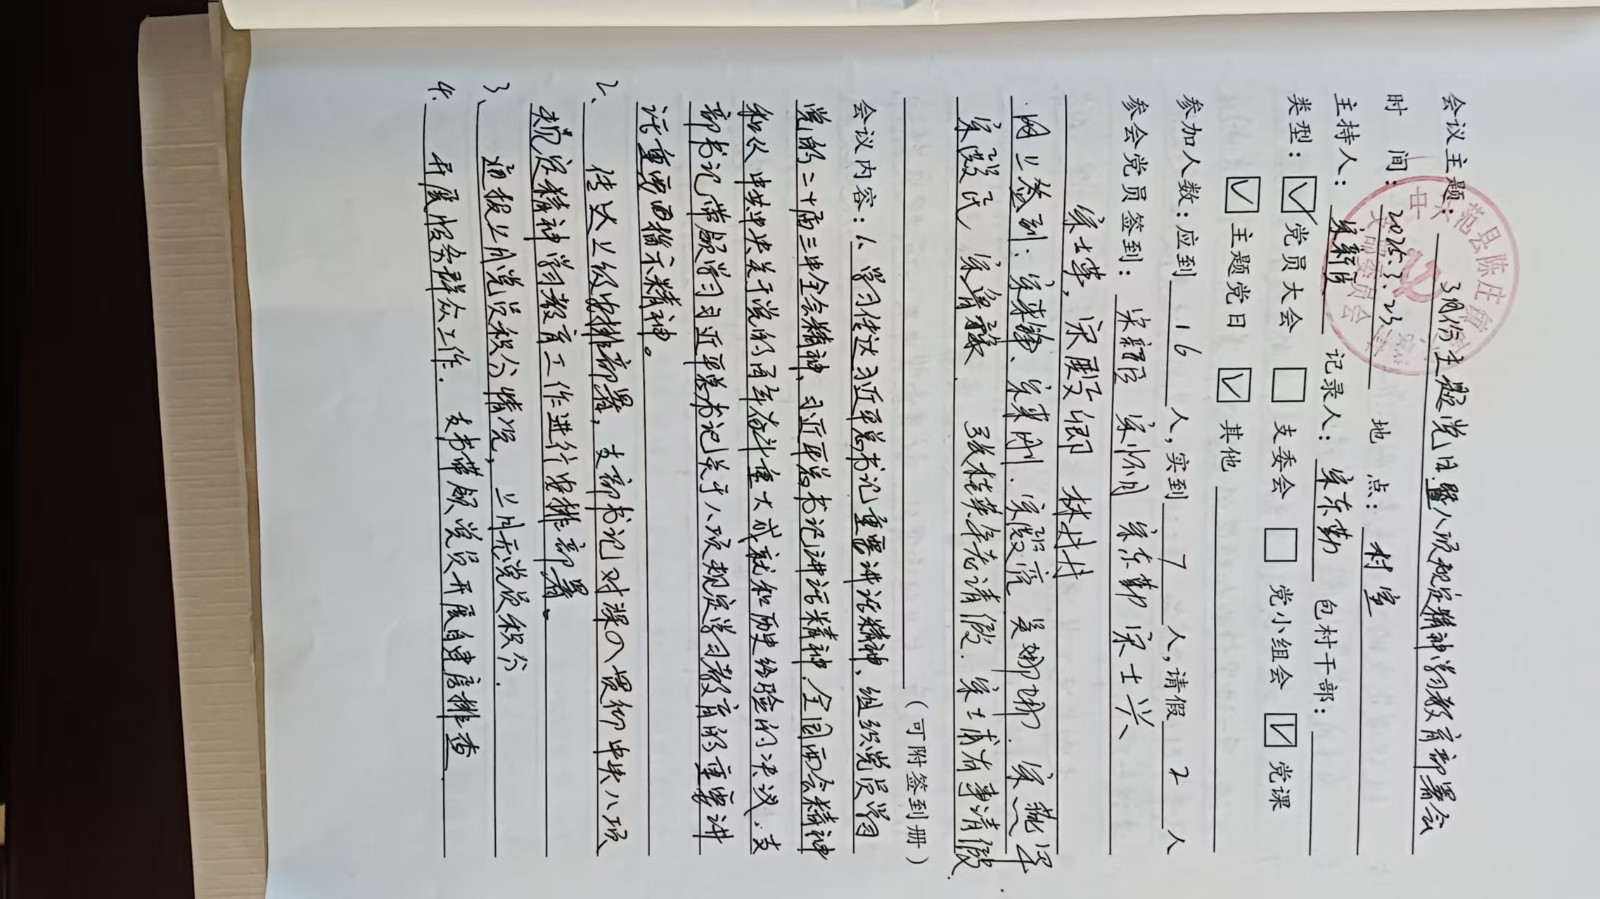 会议主题：3月份主题党日暨八项规定精神学习教育部署会
时 间：2025.3.23 地 点：村室
主持人： 记录人：宋东勤 包村干部：
类型：☑党员大会 □支委会 □党小组会 ☑党课
☑主题党日 ☑其他
参加人数：应到 16 人，实到 7 人，请假 2 人
参会党员签到： 宋怀月 宋东勤 宋士兴
宋士华，宋殿卿 林
网上签到：宋
宋殿民 请假. 宋士 有事请假.
（可附签到册）
会议内容：1、学习传达习近平总书记重要讲话精神，组织党员学习
党的二十届三中全会精神，习近平总书记讲话精神，全国两会精神
和《中共中央关于党的百年奋斗重大成就和历史经验的决议，支
部书记带领学习习近平总书记关于八项规定学习教育的重要讲
话重要指示精神。
2、传达上级安排部署，支部书记对深入贯彻中央八项
规定精神学习教育工作进行安排部署。
3、通报上月党员积分情况，上月无党员积分.
4. 开展服务群众工作. 支书带领党员开展自建房排查
范县陈庄镇